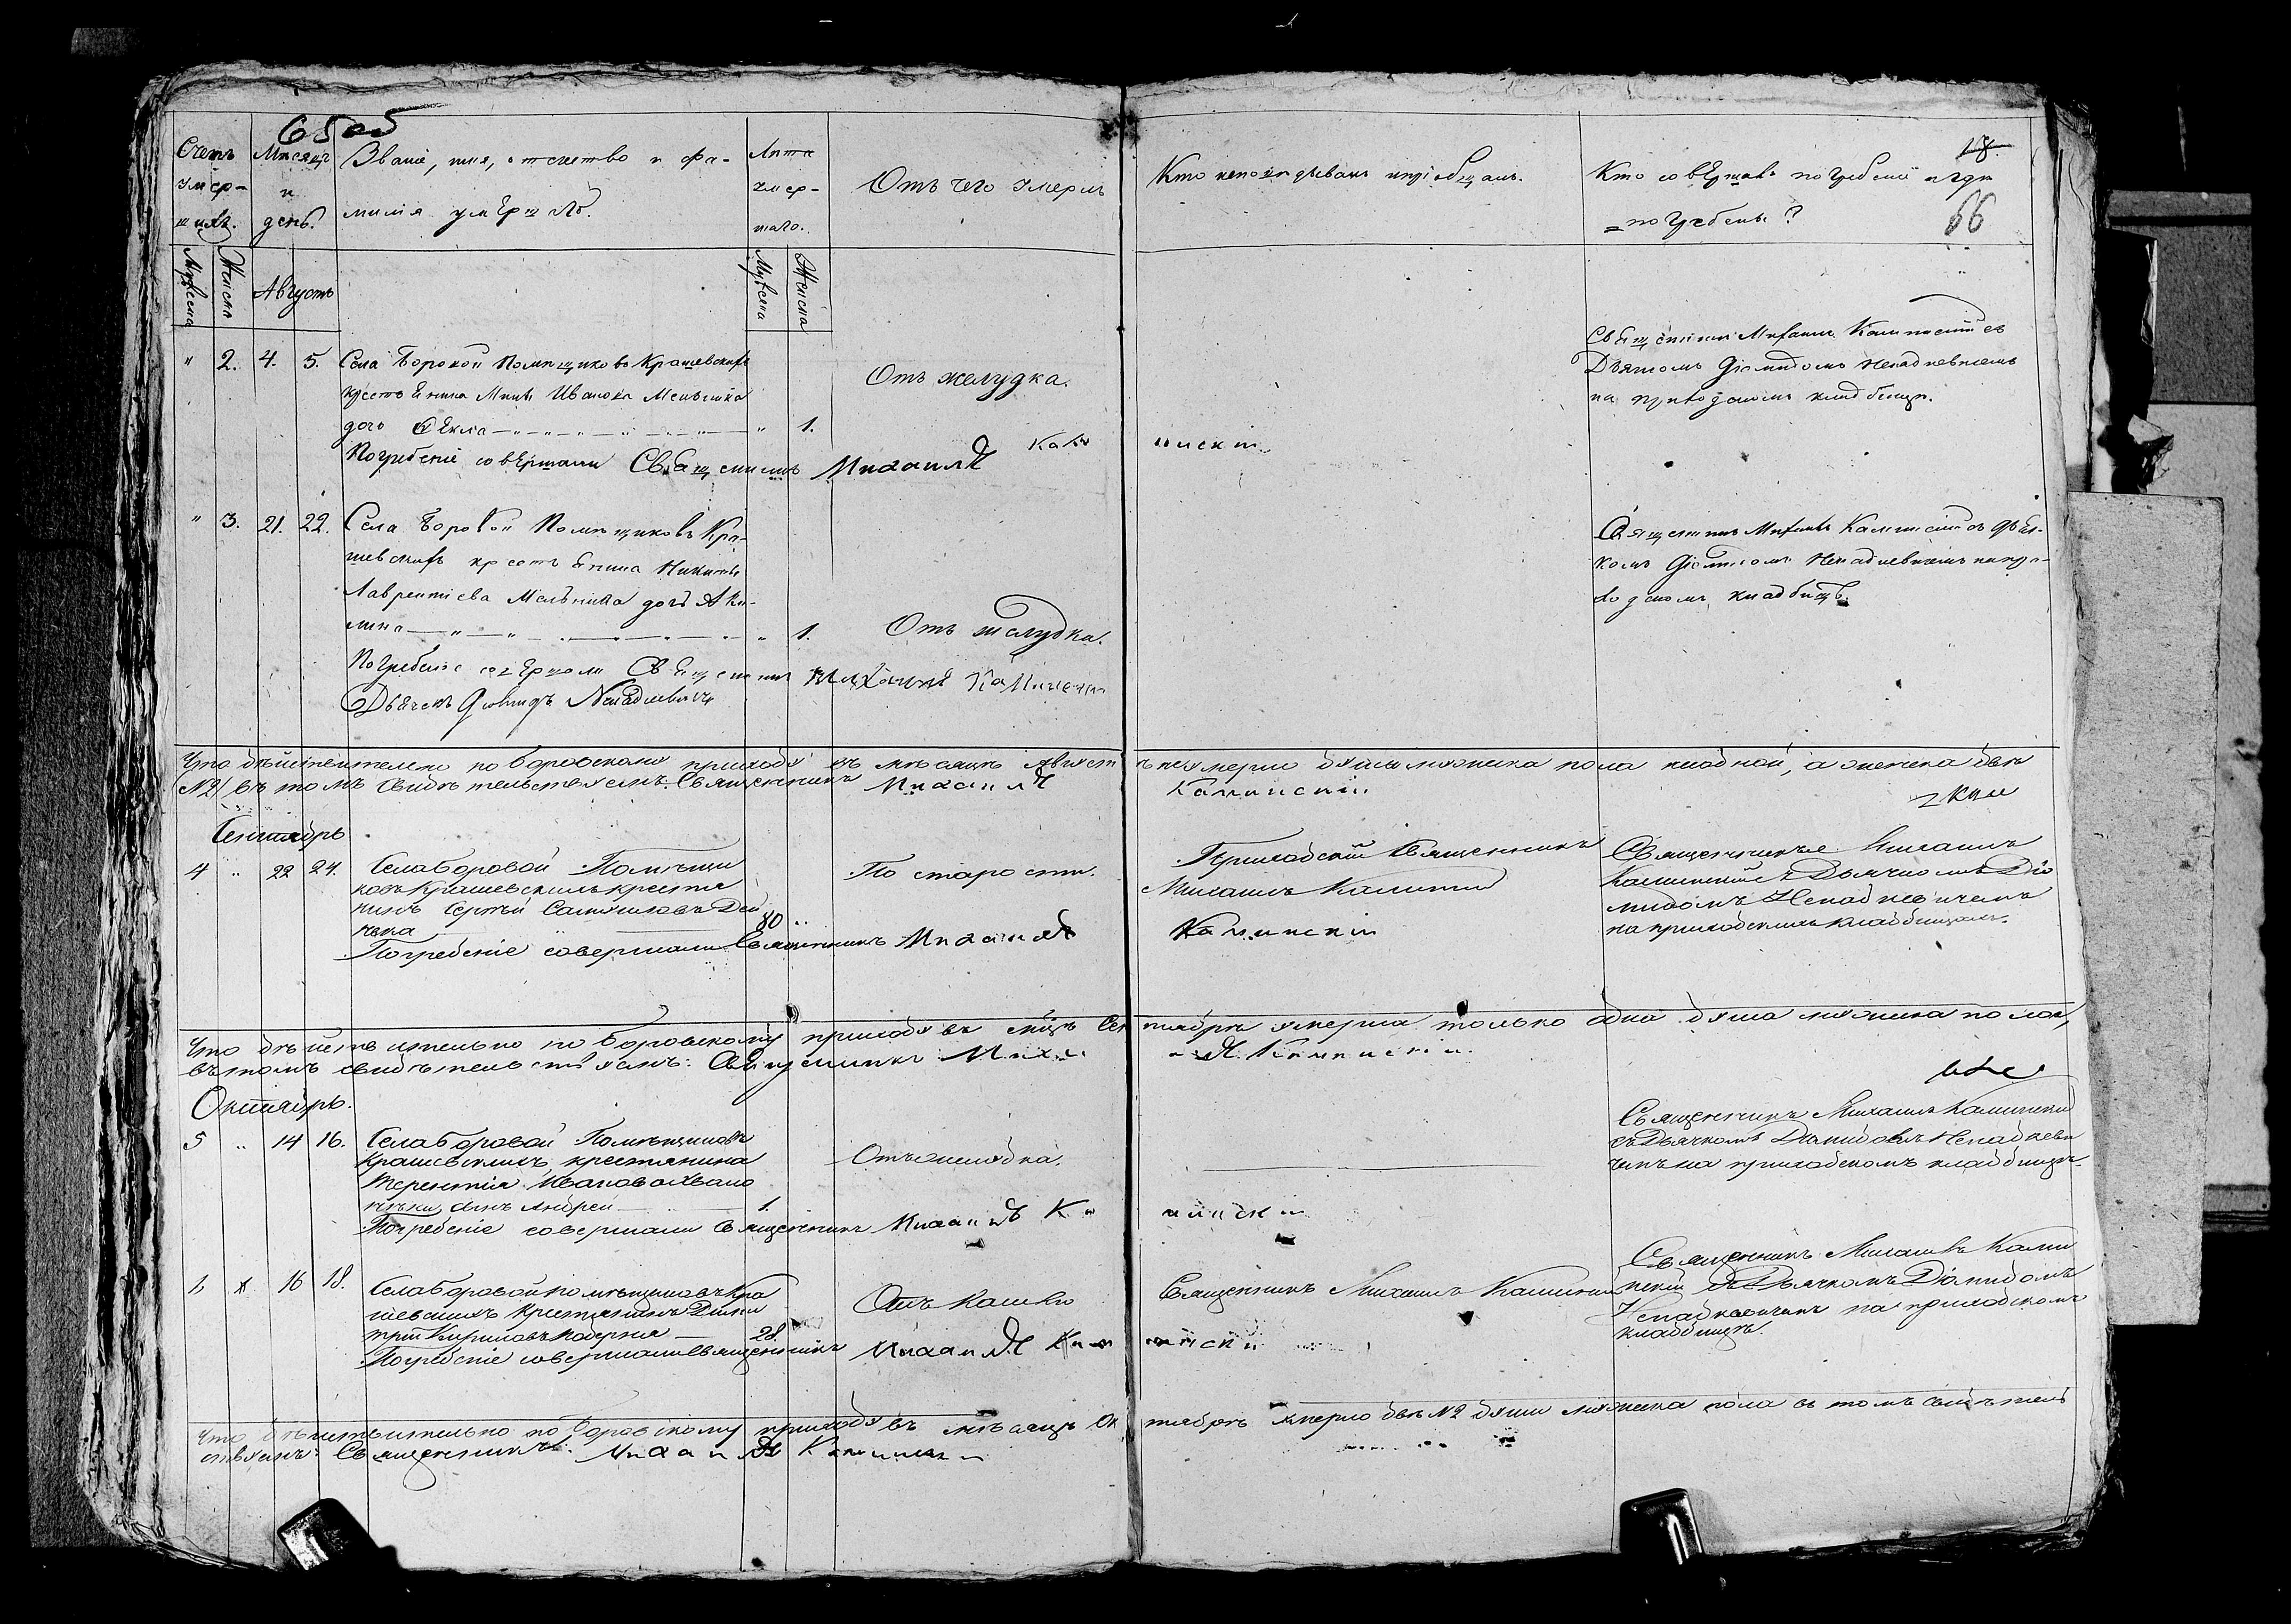 65 об
Счетъ умер-шихъ.
Мѣсяцъ и день.
Званіе, имя, отчество и фа-
милія умершихъ.
Лѣта умер-шаго.
Отъ чего умеръ
Кто исповѣдывалъ и пріобщалъ.
Кто совершалъ погребеніе и гдѣ
погребены?
18.
66
Мужеска
Женска
Августъ
Мужеска
Женска
" 2. 4. 5. Села Боровой Помѣщиковъ Крашевскихъ
крестьянина Ивановa
дочь Ѳекла " 1.
Отъ желудка.
Священникъ Михаилъ Калинскій съ
Дьячкомъ Діомидомъ Ненадкевичемъ
на приходскомъ кладбищѣ.
Погребеніе совершали Священникъ Михаилъ Калинскій
" 3. 21. 22. Села Боровой Помѣщиковъ Кра-
шевскихъ крестьянина Никиты
Лаврентіева Мельника дочь Аки-
лина " 1.
Отъ желудка.
Священникъ Михаилъ Калинскій съ Дьяч-
комъ Діомидомъ Ненадкевичемъ на при-
ходскомъ кладбищѣ.
Погребеніе совершали Священникъ Михаилъ Калинскій
Дьячекъ Діомидъ Ненадкевичъ
Что дѣйствительно по Боровскому приходу въ мѣсяцѣ Августѣ умерло душъ мужеска пола ниодной, а женска двѣ
(№2) въ томъ свидѣтельствуемъ: Священникъ Михаилъ Калинскій
Сентябрь
4 " 22 24. Села Боровой Помѣщи
ковъ Крашевскихъ крестья
нинъ Сергѣй Самуиловъ
80 "
По старости.
Приходскій Священникъ
Михаилъ Калинскій
Священникъ Михаилъ
Калинскій съ Дьячкомъ Діо
мидомъ Ненадкевичемъ
на приходскомъ кладбищѣ.
Погребеніе совершали Священникъ Михаилъ Калинскій
Что дѣйствительно по Боровскому приходу въ мѣсцѣ Сентябрѣ умерла только одна душа мужеска полa,
въ томъ свидѣтельствуемъ: Священникъ Михаилъ Калинскій.
Октябрь.
5 " 14 16. Села Боровой Помѣщиковъ
Крашевскихъ крестьянина
Терентія Иванова
сынъ Андрей 1.
Отъ желудка.
Священникъ Михаилъ Калинскій
съ Дьячкомъ Діомидомъ Ненадкеви
чемъ на приходскомъ кладбищѣ.
Погребеніе совершали Священникъ Михаилъ Калинскій
16 18. Села Боровой помѣщиковъ Кра
шевскихъ крестьянинъ Дими
трій Кириловъ 28.
Отъ кашлю
Священникъ Михаилъ Калинскій
Священникъ Михаилъ Кали
нскій съ Дьячкомъ Діомидомъ
Ненадкевичемъ на приходскомъ
кладбищѣ.
Погребеніе совершали Священникъ Михаилъ Калинскій
Что дѣйствительно по Боровскому приходу въ мѣсяцѣ Октябрѣ умерло двѣ №2 души мужеска пола въ томъ свидѣтель
ствуемъ: Священникъ Михаилъ Калинскій